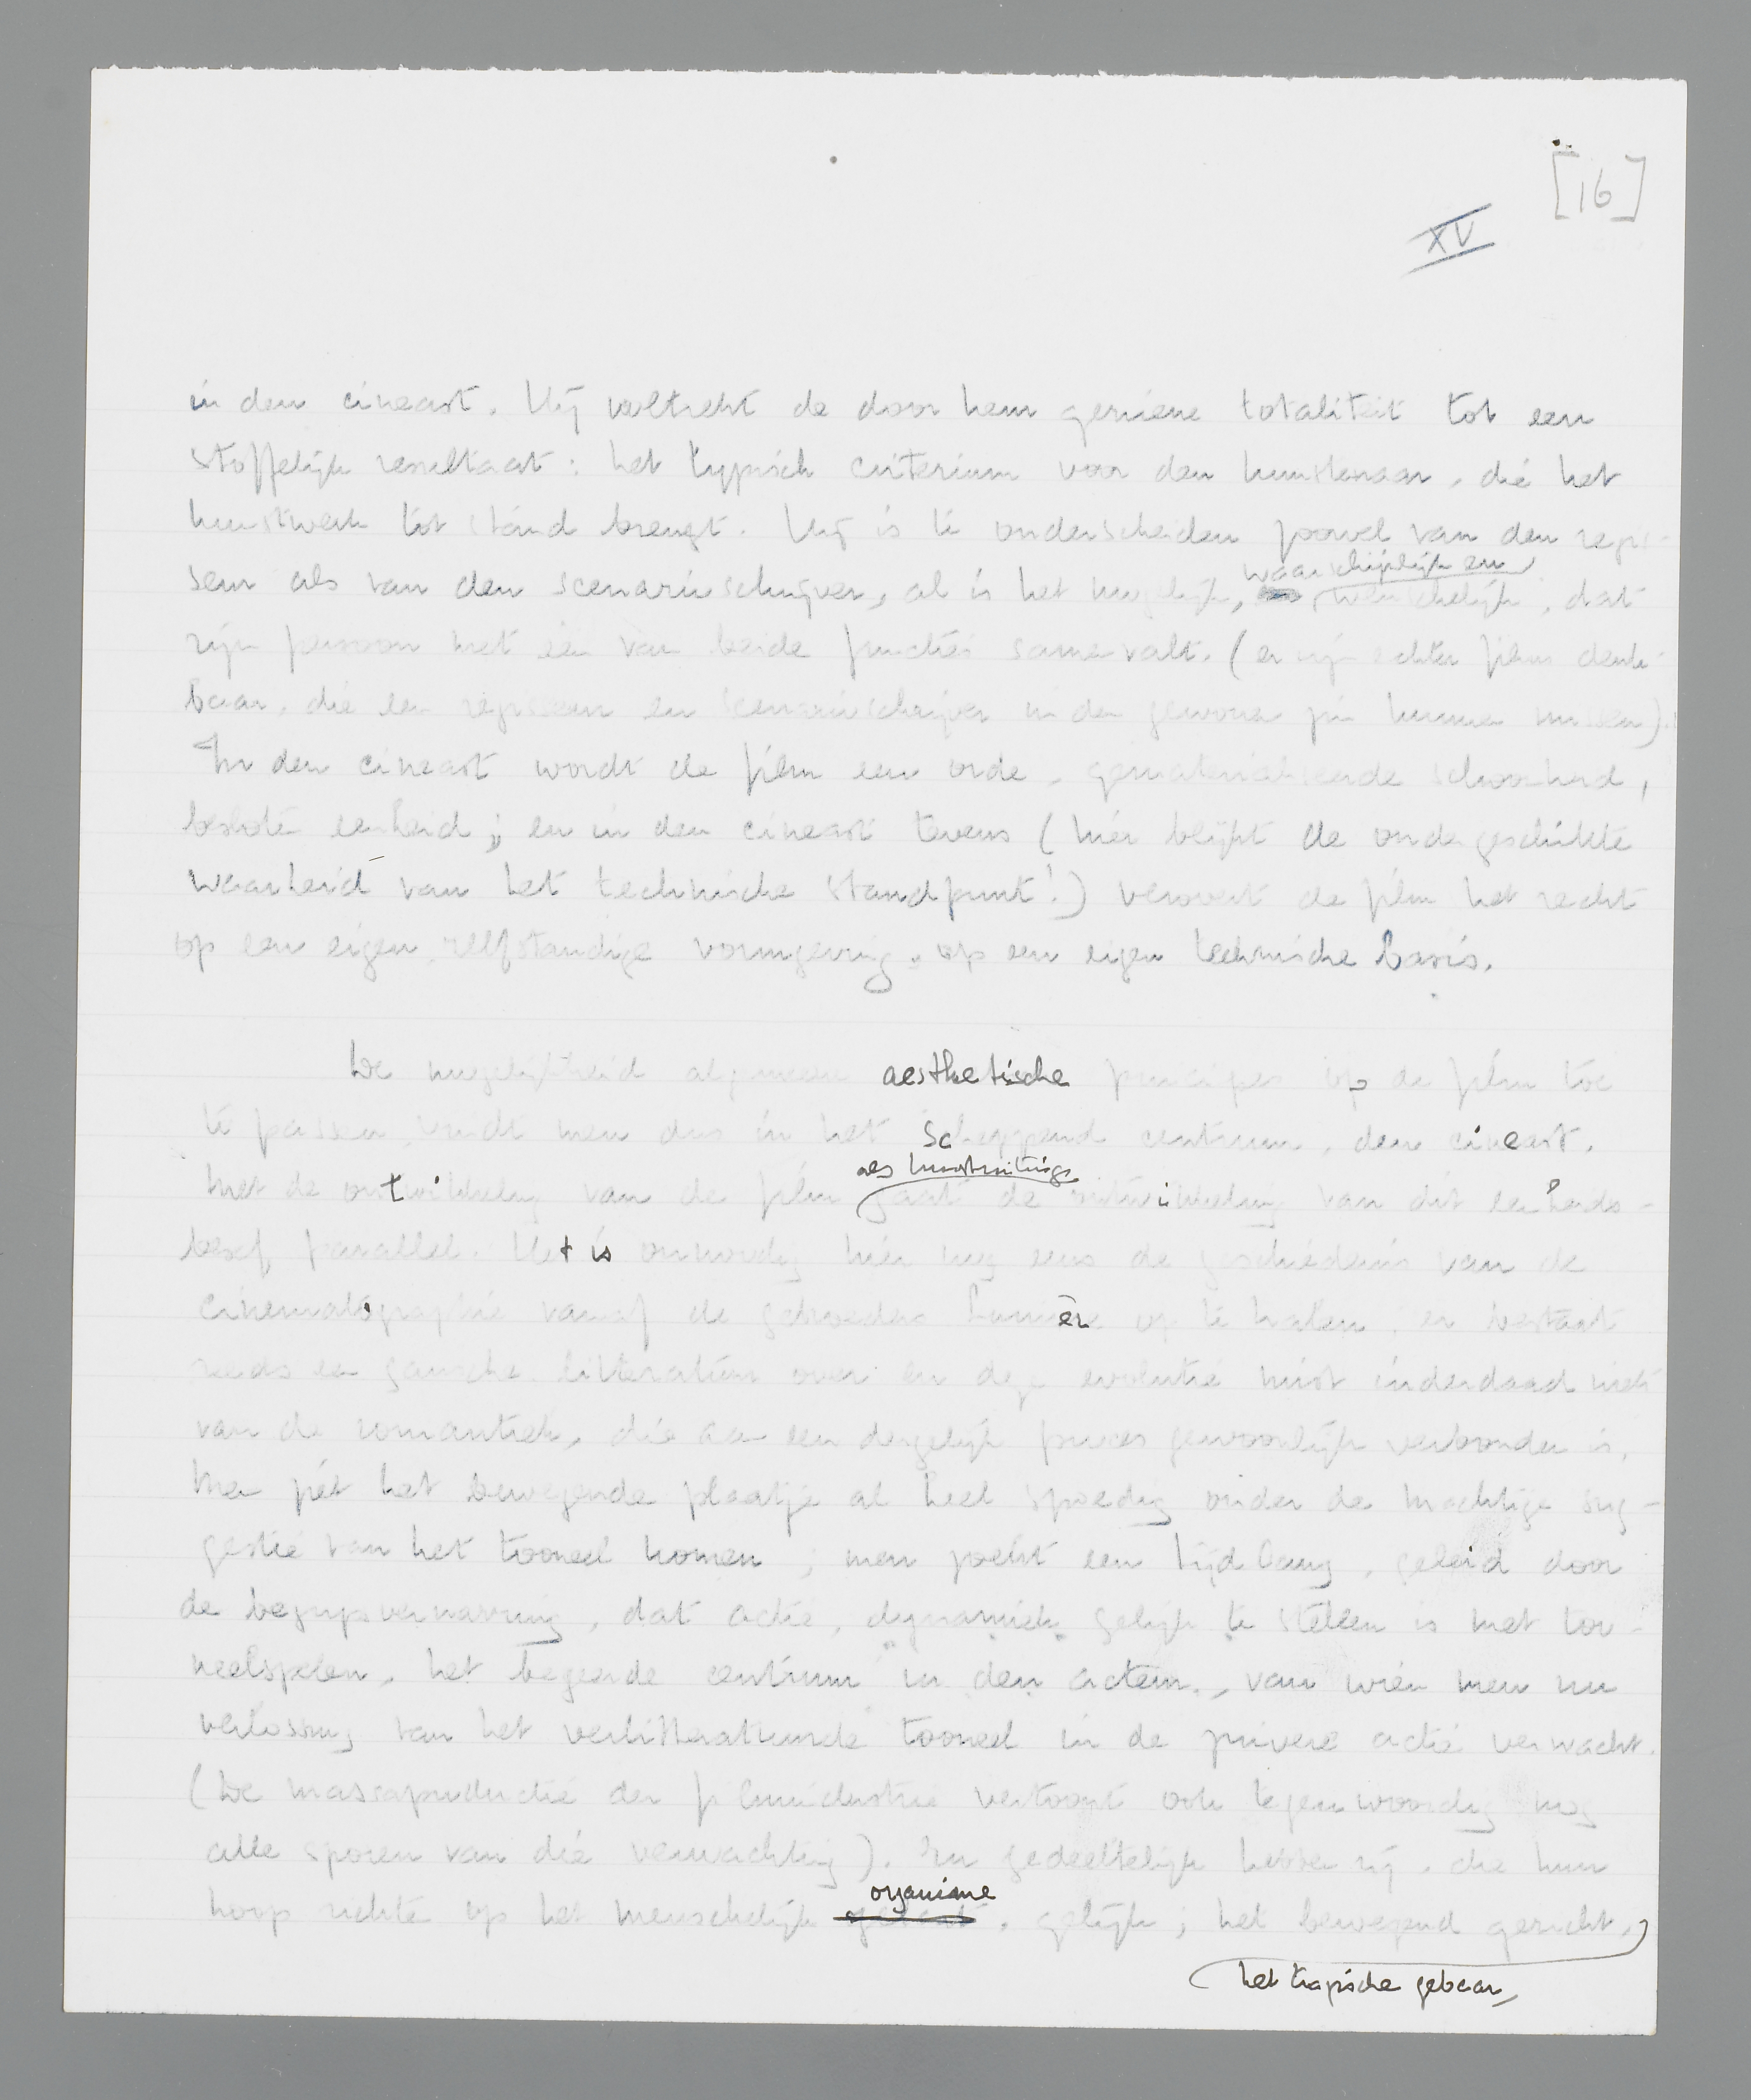 [16]
XV
in den cineast. Hij voltrekt de door hem geziene totaliteit tot een
stoffelijk resultaat: het typisch criterium voor den kunstenaar, die het
kunstwerk tot stand brengt. Hij is te onderscheiden zoowel van den regis-
waarschijnlijk en
seur als van den scenarioschrijver, al is het mogelijk, wenschelijk, dat
zijn persoon met één van beide functies samenvalt. (er zijn echter films denk-
baar, die een regisseur en scenarioschrijver in den gewonen zin kunnen missen).
In den cineast wordt de film een orde, gematerialiseerde schoonheid,
besloten eenheid; en in den cineast tevens (hier blijkt de ondergeschikte
waarheid van het technische standpunt!) verovert de film het recht
op een eigen, zelfstandige vormgeving, op een eigen technische basis.
De mogelijkheid algemeen aesthetische principes op de film toe
te passen, vindt men dus in het scheppend centrum, den cineast.
als kunstuiting
Met de ontwikkeling van de film gaat de ontwikkeling van dit eenheids-
besef parallel. Het is onnoodig hier nog eens de geschiedenis van de
cinematographie vanaf de gebroeders Lumière op te halen, er bestaat
reeds een gansche litteratuur over en deze evolutie mist inderdaad niets
van de romantiek, die aan een dergelijk proces gewoonlijk verbonden is.
Men ziet het bewegende plaatje al heel spoedig onder de machtige sug-
gestie van het tooneel komen; men zoekt een tijdlang, geleid door
de begripsverwarring, dat actie, dynamiek gelijk te stellen is met too-
neelspelen, het begeerde centrum in den acteur, van wien men nu
verlossing van het verlitteratuurde tooneel in de zuivere actie verwacht.
(De massaproductie der filmindustrie vertoont ook tegenwoordig nog
alle sporen van die verwachting). En gedeeltelijk hebben zij, die hun
organisme
hoop richten op het menschelijk, gelijk; het bewegend gezicht,
het tragische gebaar,